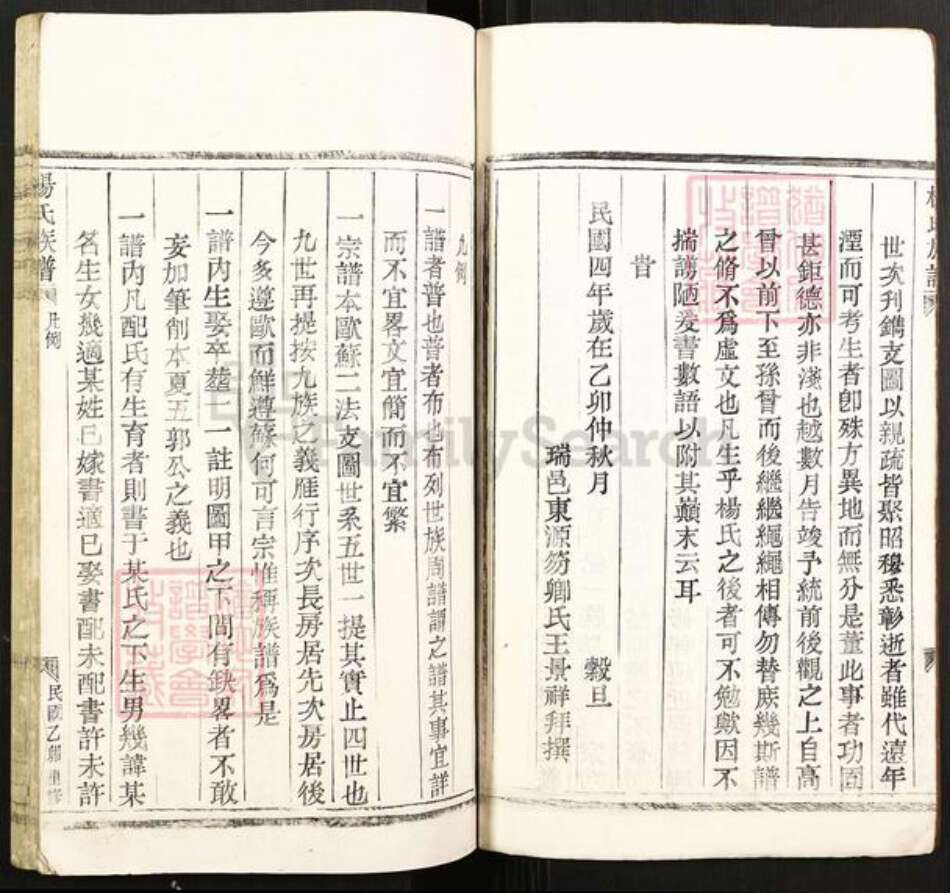 楊氏族譜
世次刋鐫支圖以親疏皆聚昭穆悉彰逝者雖代遠年
湮而可考生者卽殊方異地而無分是董此事者功固
甚鉅德亦非淺也越數月告竣予統前後觀之上自高
曾以前下至孫曾而後繼繼繩繩相傳勿替庻幾斯譜
之脩不爲虛文也凡生乎楊氏之後者可不勉歟因不
揣謭陋爰書數語以附其巔末云耳
旹
民國四年歲在乙卯仲秋月 穀旦
瑞邑東源笏卿氏王景祥拜撰
凢例
一譜者普也普者布也布列世族周譜謂之譜其事宜詳
而不宜畧文宜簡而不宜繁
一宗譜本歐蘇二法支圖世系五世一提其實止四世也
九世再提按九族之義雁行序次長房居先次房居後
今多遵歐而鮮遵蘇何可言宗惟稱族譜爲是
一譜內生娶卒塟一一註明圖甲之下間有缺畧者不敢
妄加筆削本夏五郭公之義也
一譜內凡配氏有生育者則書于某氏之下生男幾諱某
名生女幾適某姓已嫁書適已娶書配未配書許未許
楊氏族譜 凡例 民國乙卯重修
FamilySearch